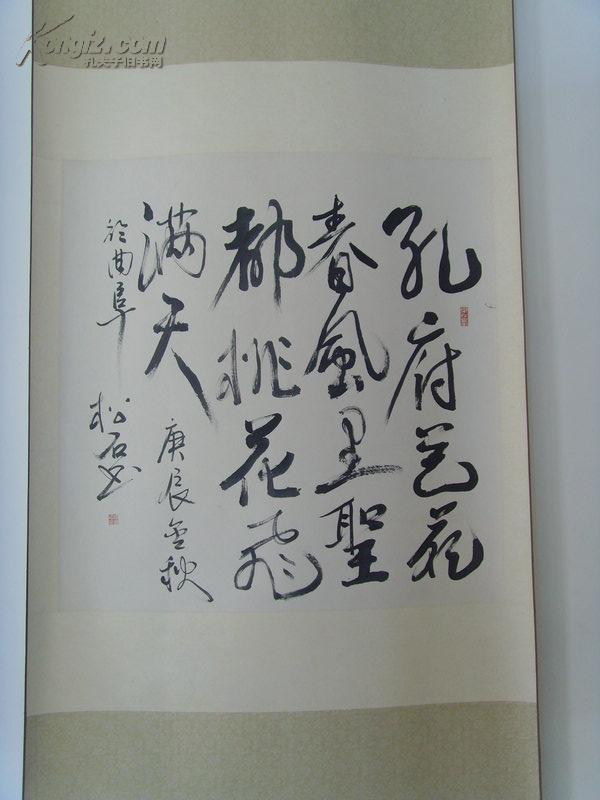 孔府兰花
春风里聖
都桃花飛
满天
庚辰金秋
於曲阜
松石书
Kongfz.com
孔夫子旧书网